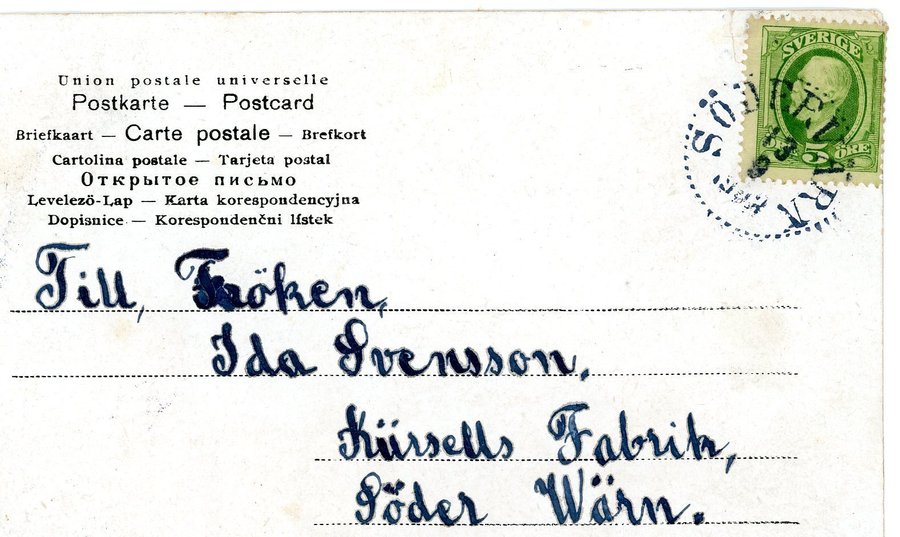 Union postale universelle
Postkarte — Postcard
Briefkaart — Carte postale — Brefkort
Cartolina postale — Tarjeta postal
Открытое письмо
Levelező-Lap — Karta korespondencyjna
Dopisnice — Korespondenčni lístek
SVERIGE
5 ÖRE
Till, Fröken,
Ida Svensson,
Kürsells Fabrik,
Söder Wärn.